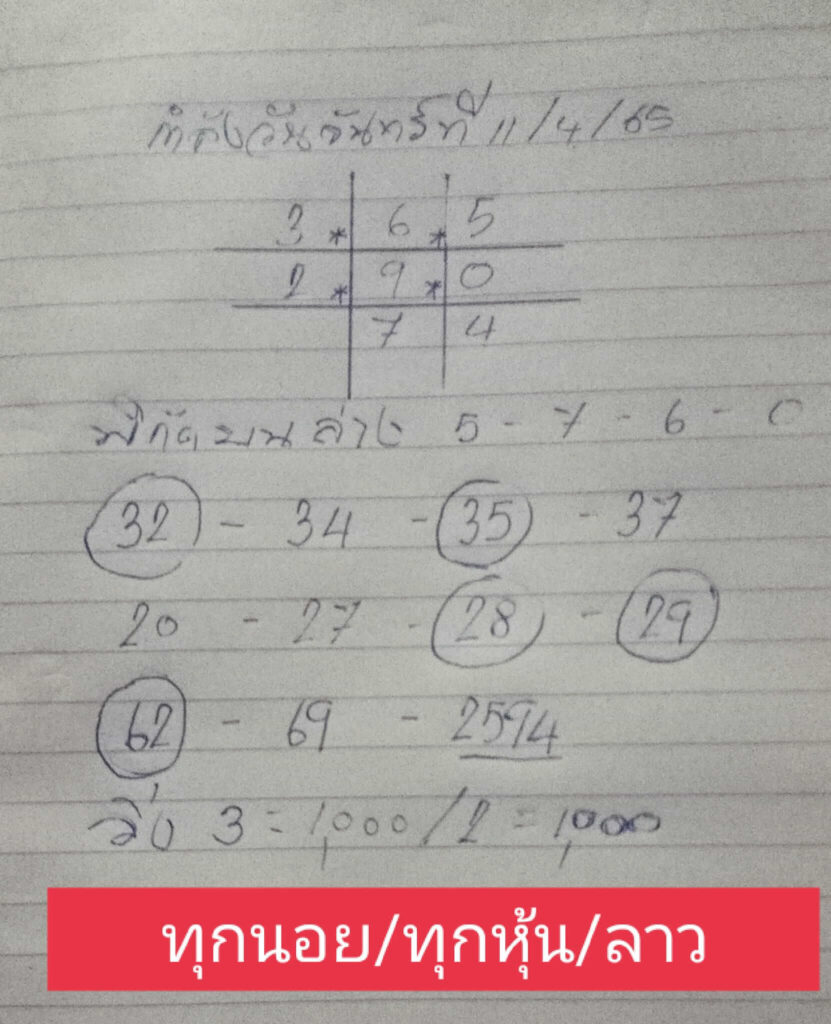 กำลังวันจันทร์ที่ 11/4/65
3 * 6 * 5
2 * 9 * 0
7 4
บน ล่าง 5 - 7 - 6 - 0
32 - 34 - 35 - 37
20 - 27 - 28 - 29
62 - 69 - 2594
วิ่ง 3 = 1,000 / 2 = 1,000
ทุกนอย/ทุกหุ้น/ลาว